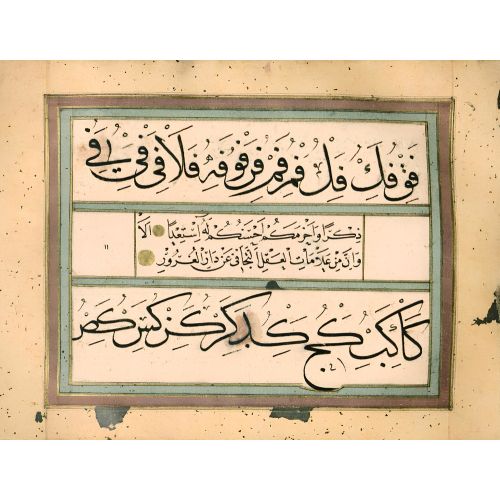 فق فك فل فم فم فن فو فه فلا فى فى
ذكرا واحزمكم احسنكم له استعدادا الا
وان من علامات العقل التجافي عن دار الغرور
كا كب كج كد كر كر كس كص